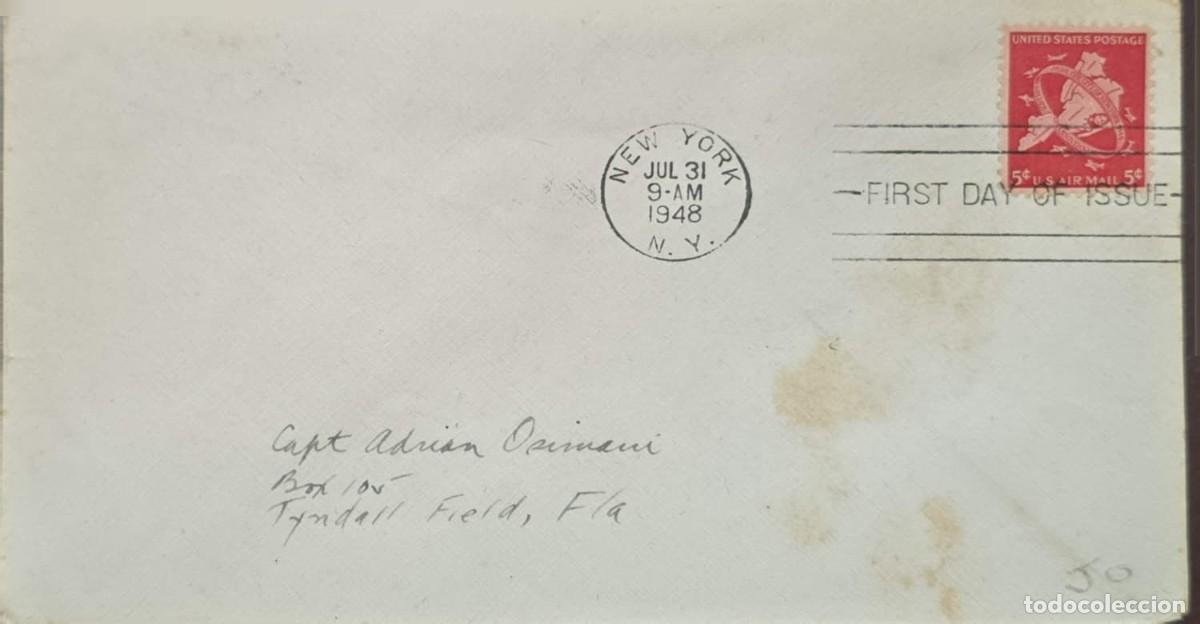 UNITED STATES POSTAGE
5¢ U.S. AIR MAIL 5¢
NEW YORK
JUL 31
9-AM
1948
N. Y.
FIRST DAY OF ISSUE
Capt Adrian Osimani
Box 105
Tyndall Field, Fla
JO
todocoleccion